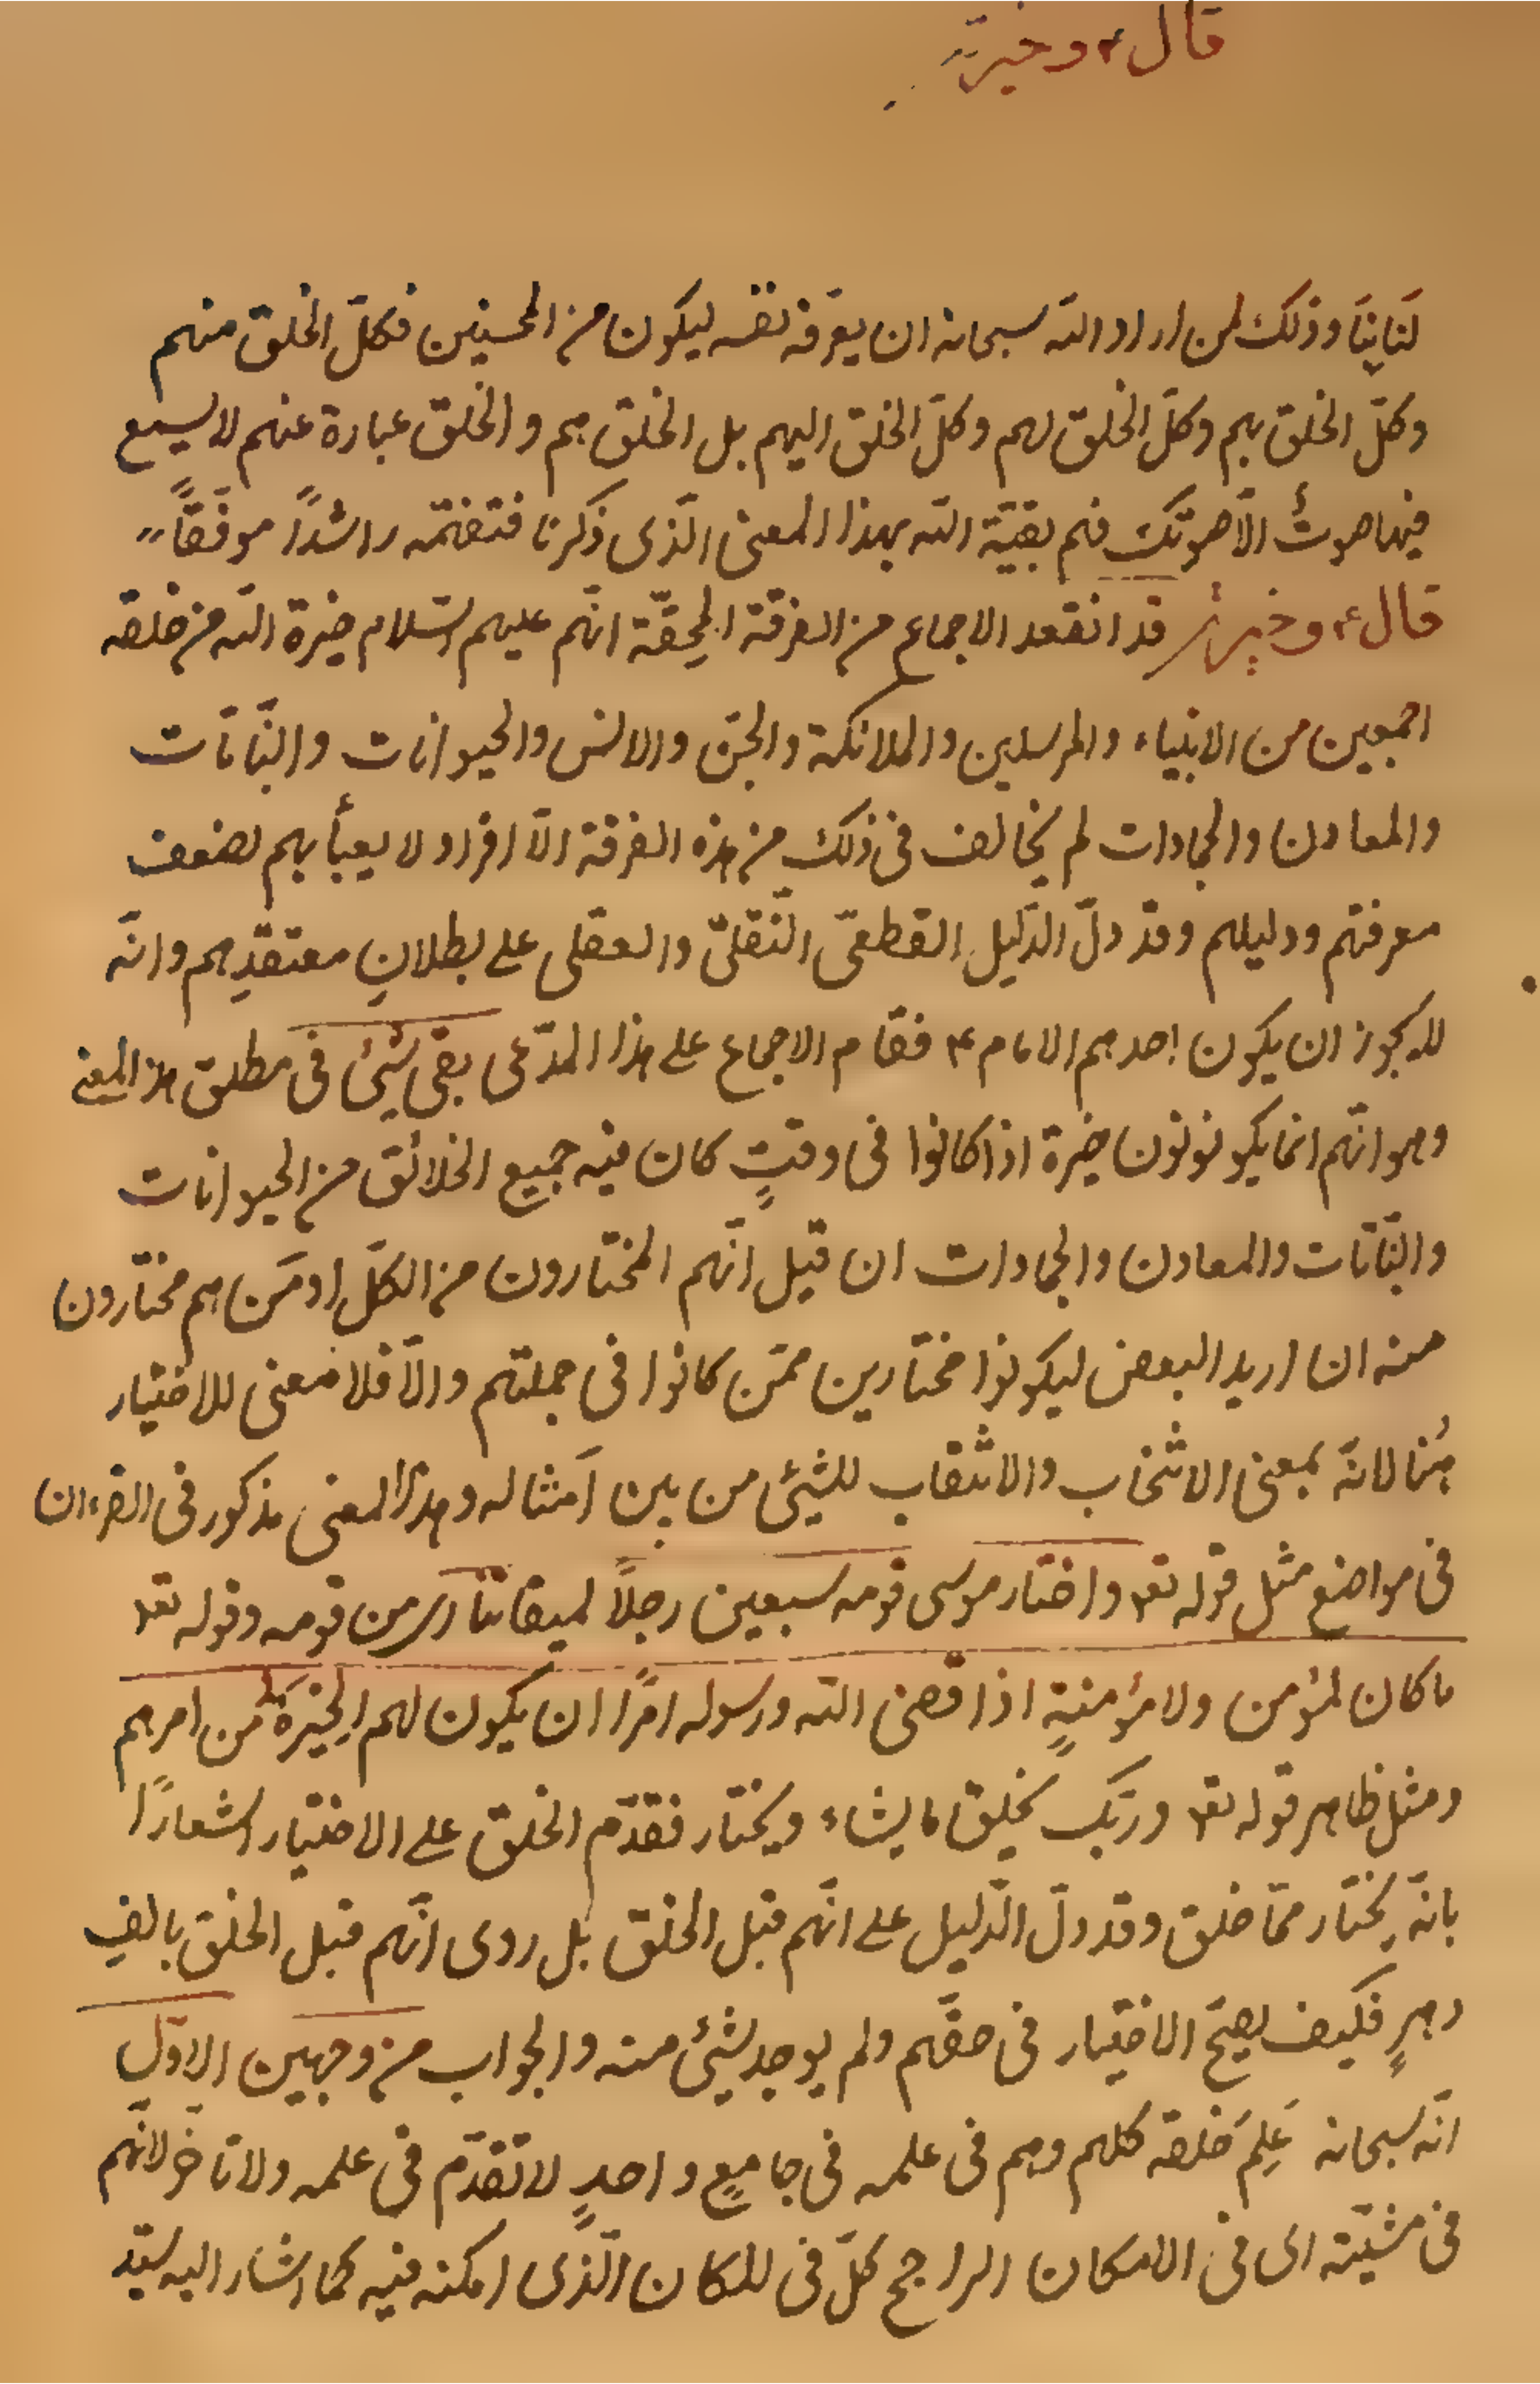 قال ع وخيرته
لنابنا وذلك لمن اراد الله سبحانه ان يعرّفه نفسه ليكون من المحسنين فكلّ الخلق منهم
وكلّ الخلق بهم وكلّ الخلق لهم وكلّ الخلق اليهم بل الخلق هم والخلق عبارة عنهم لا يسمع
فيها صوتٌ الّا صوتك فهم بقيّة الله بهذا المعنى الّذى ذكرنا فتفهّمه راشداً موفّقاً
قال ع وخيرته قد انقعد الاجماع من الفرقة المحِقّة انّهم عليهم السّلام خيرة الله من خلقه
اجمعين من الانبياء والمرسلين والملائكة والجنّ والانس والحيوانات والنّباتات
والمعادن والجمادات لم يخالف فى ذلك من هذه الفرقة الّا افراد لا يعبأ بهم لضعف
معرفتهم ودليلهم وقد دلّ الدّليل القطعىّ النّقلىّ والعقلى على بطلانِ معتقدِهم وانّه
لا يجوز ان يكون احدهم الامام ع فقام الاجماع على هذا المدّعى بقى شئ فى مطلق هذا المعنى
وهو انّهم انما يكونونون خيرة اذا كانوا فى وقتٍ كان فيه جميع الخلائق من الحيوانات
والنّباتات والمعادن والجمادات ان قيل انّهم المختارون من الكلّ او مَن هم مختارون
منه ان اريد البعض ليكونوا مختارين ممّن كانوا فى جملتهم والّا فلا معنى للاختيار
هُنا لانّه بمعنى الانتخاب والانتقاب للشئ من بين اَمثاله وهذا المعنى مذكور فى القرءان
فى مواضع مثل قوله تع واختار موسى قومه سبعين رجلاً لميقاتنا اى من قومه وقوله تع
ما كان لمؤمن ولا مؤمنةٍ اذا قضى الله ورسوله امرًا ان يكون لهم الخِيَرَةُ من امرهم
ومثل ظاهر قوله تع وربّك يخلق ما يشاء ويختار فقدّم الخلق على الاختيار اشعارًا
بانّه يختار ممّا خلق وقد دلّ الدّليل على انّهم قبل الخلق بل روى انّهم قبل الخلق بالفِ
دهرٍ فكيف يصحّ الاختيار فى حقّهم ولم يوجد شئ منه والجواب من وجهين الاوّل
انّه سبحانه عَلِمَ خلقه كلهم وهم فى علمه فى جامعٍ واحدٍ لا تقدّم فى علمه ولا تاخّر لانّهم
فى مشيّته اى فى الامكان الراجح كلّ فى المكان الّذى امكنه فيه كما اشار اليه سيّد